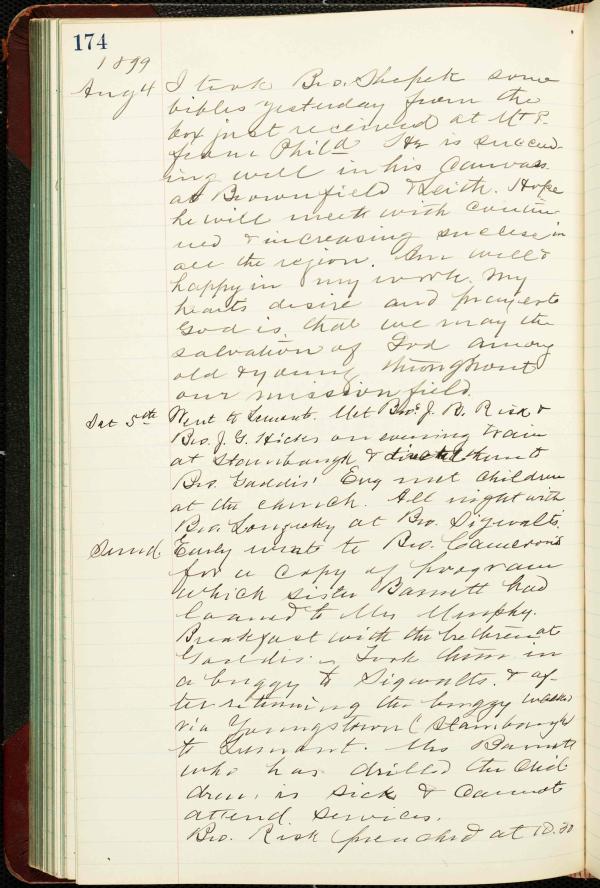 174
1899
Aug 4 I took Bro. Shepek some
bibles yesterday from the
box just received at Mt P.
from Phila He is succeed-
ing well in his canvass
at Brownfield & Leith. Hope
he will meet with contin
ued & increasing success in
all the region. Am well &
happy in my work. My
hearts desire and prayer to
God is that we may the
salvation of God among
old & young throughout
our mission field.
Sat 5th Went to Lemont. Met Bros J. B. Risk &
Bro. J. G. Hicks on evening train
at Stambaugh & directed them to
Bro. Gaddis' Eng met children
at the church. All night with
Bro. at Bro. Sigwalts.
Sund. Early went to Bro. Camerons
for a copy of program
which sister Barnett had
loaned to Mrs Murphy.
Breakfast with the brethren at
Gaddis. Took them in
a buggy to Sigwalts. & af-
ter returning the buggy walked
via Youngstown (Stambaugh)
to Lemont. Mrs Barnett
who has drilled the chil-
dren, is sick & cannot
attend services.
Bro. Risk preached at 10.30